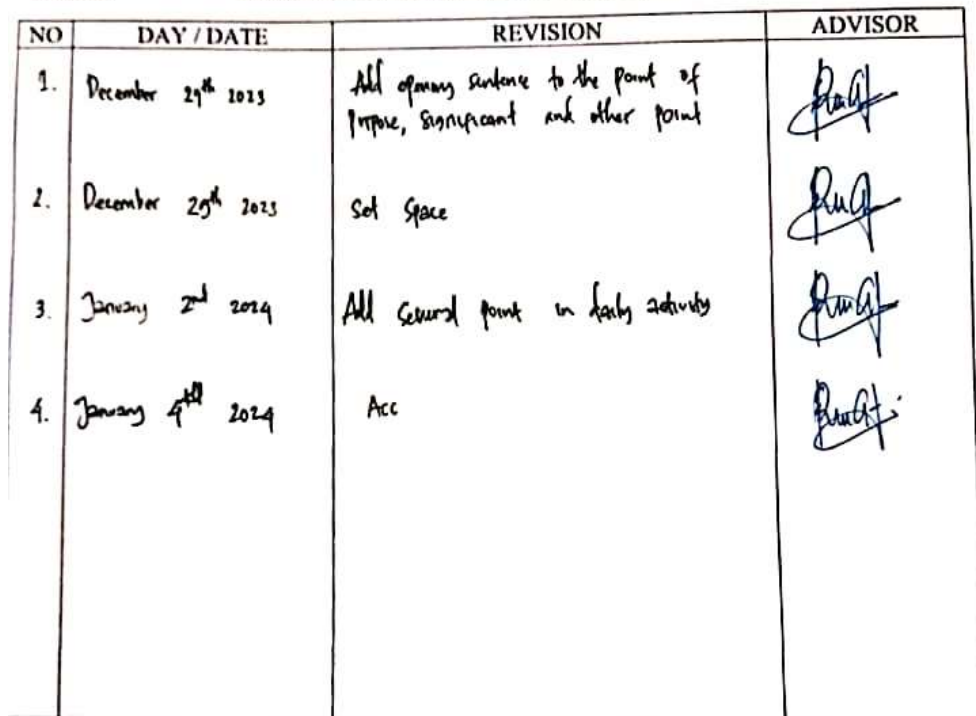 NO DAY / DATE REVISION ADVISOR
1. December 29th 2023 Add opening sentence to the point of
purpose, significant and other point
2. December 29th 2023 Set Space
3. January 2nd 2024 Add several point in daily activity
4. January 4th 2024 Acc